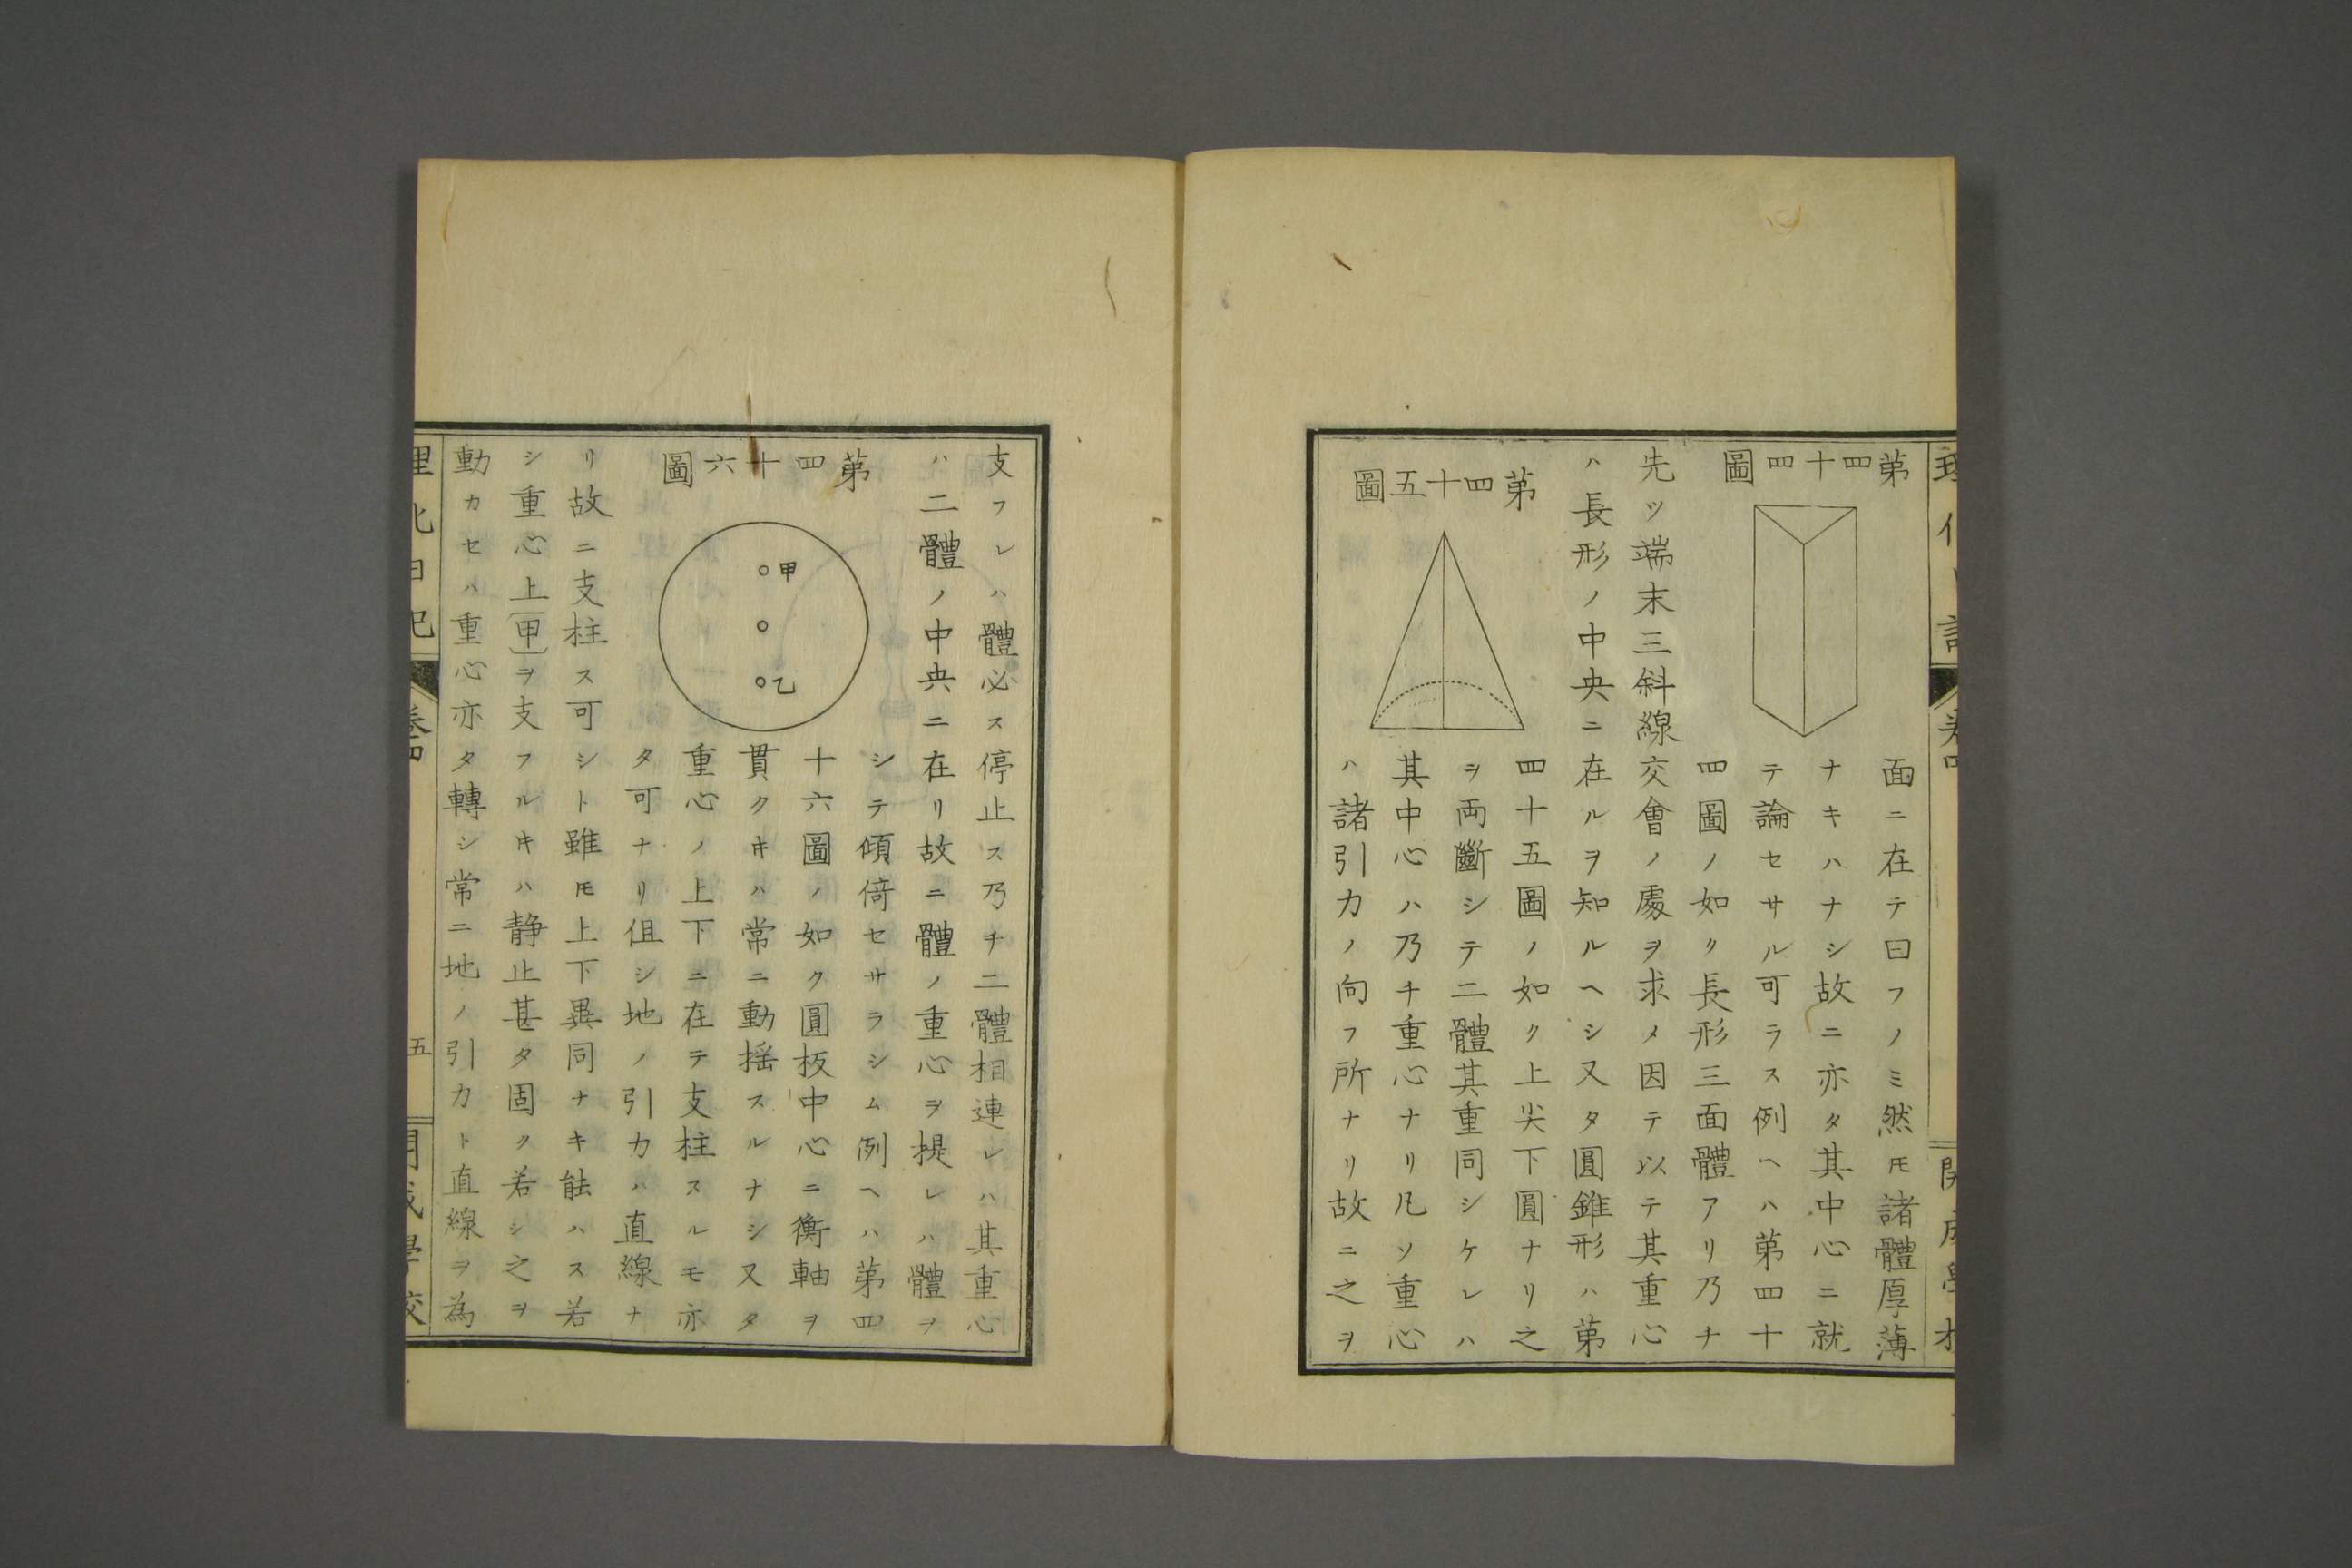 第四十四圖
面ニ在テ曰フノミ然𪜈諸體厚薄
ナキハナシ故ニ亦タ其中心ニ就
テ論セサル可ラス例ヘハ第四十
四圖ノ如ク長形三面體アリ乃チ
先ツ端末三斜線交會ノ處ヲ求メ因テ以テ其重心
ハ長形ノ中央ニ在ルヲ知ルヘシ又タ圓錐形ハ第
第四十五圖
四十五圖ノ如ク上尖下圓ナリ之
ヲ両斷シテ二體其重同シケレハ
其中心ハ乃チ重心ナリ凡ソ重心
ハ諸引力ノ向フ所ナリ故ニ之ヲ
支フレハ體必ス停止ス乃チ二體相連レハ其重心
ハ二體ノ中央ニ在リ故ニ體ノ重心ヲ提レハ體ヲ
第四十六圖
甲
乙
シテ傾倚セサラシム例ヘハ第四
十六圖ノ如ク圓板中心ニ衡軸ヲ
貫クキハ常ニ動揺スルナシ又タ
重心ノ上下ニ在テ支柱スルモ亦
タ可ナリ但シ地ノ引力ハ直線ナ
リ故ニ支柱ス可シト雖𪜈上下異同ナキ能ハス若
シ重心上〔甲〕ヲ支フルキハ静止甚タ固ク若シ之ヲ
動カセハ重心亦タ轉シ常ニ地ノ引力ト直線ヲ為
理化日記
巻四
五
開成學校